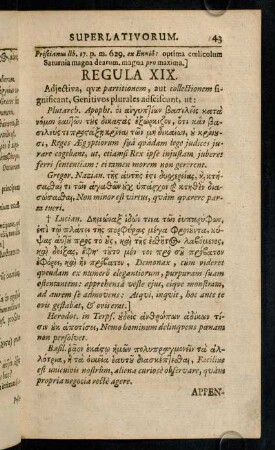 SUPERLATIVORUM. 43
Priscianus lib. 17. p. m. 629. ex Ennio: optima cœlicolum
Saturnia magna dearum. magna pro maxima.]
REGULA XIX.
Adjectiva, quæ partitionem, aut collectionem si-
gnificant, Genitivos plurales adsciscunt, ut:
Plutarch. Apopht. οἱ αἰγυπτίων βασιλεῖς κατὰ
νόμον ἑαυτῶν τὺς δικαςὰς ἐξώρκιζον, ὅτι κἂν βασι-
λεύς τι προςάξῃ κρῖναι τῶν μὴ δικαίων, ὐ κρινῦ-
σι, Reges Ægyptiorum suâ quâdam lege judices jur-
jurare cogebant, ut, etiamsi Rex ipse injustam juberet
ferri sententiam et tamen morem non gererent.
Gregor. Nazian. τῆς αὐτῆς ἐςι δυσχερείας,
Non minor est virtus, quàm quærere par-
ta tueri.
† Lucian. Δημώναξ ἰδών τινα τῶν
ἐπὶ τῷ πλάτει τῆς πορφύρας μέγα φρονῦντα, κύ-
ψας αὐτῦ πρὸς τὸ ὖς, καὶ τῆς ἐσθῆτος λαβόμενος,
καὶ δείξας, ἔφη· τῦτο μέν τοι πρὸ σῦ πρόβατον
ἐφόρει, καὶ ἦν πρόβατον, Demonax, cum videret
quendam ex numero elegantiorum, purpuram suam
ostentantem: apprehensâ veste ejus, eique monstratâ,
ad aurem se admovens: Atqui, inquit, hoc ante te
ovis gestabat, & ovis erat.
Herodot. in Terps. ὐδεὶς ἀνθρώπων ἀδίκων τίσιν
ὐκ ἀποτίσει, Nemo hominum delinqvens pœnam
non persolvet.
Basil. ῥᾷον ἑκάςῳ ἡμῶν πολυπραγμονεῖν τὰ ἀλ-
λότρια, ἢ τὰ οἰκεῖα ἑαυτῦ διασκέπτεσθαι, Facilius
est unicuivis nostrûm, aliena curiosè observare, quàm
propria negocia rectè agere.
APPEN-